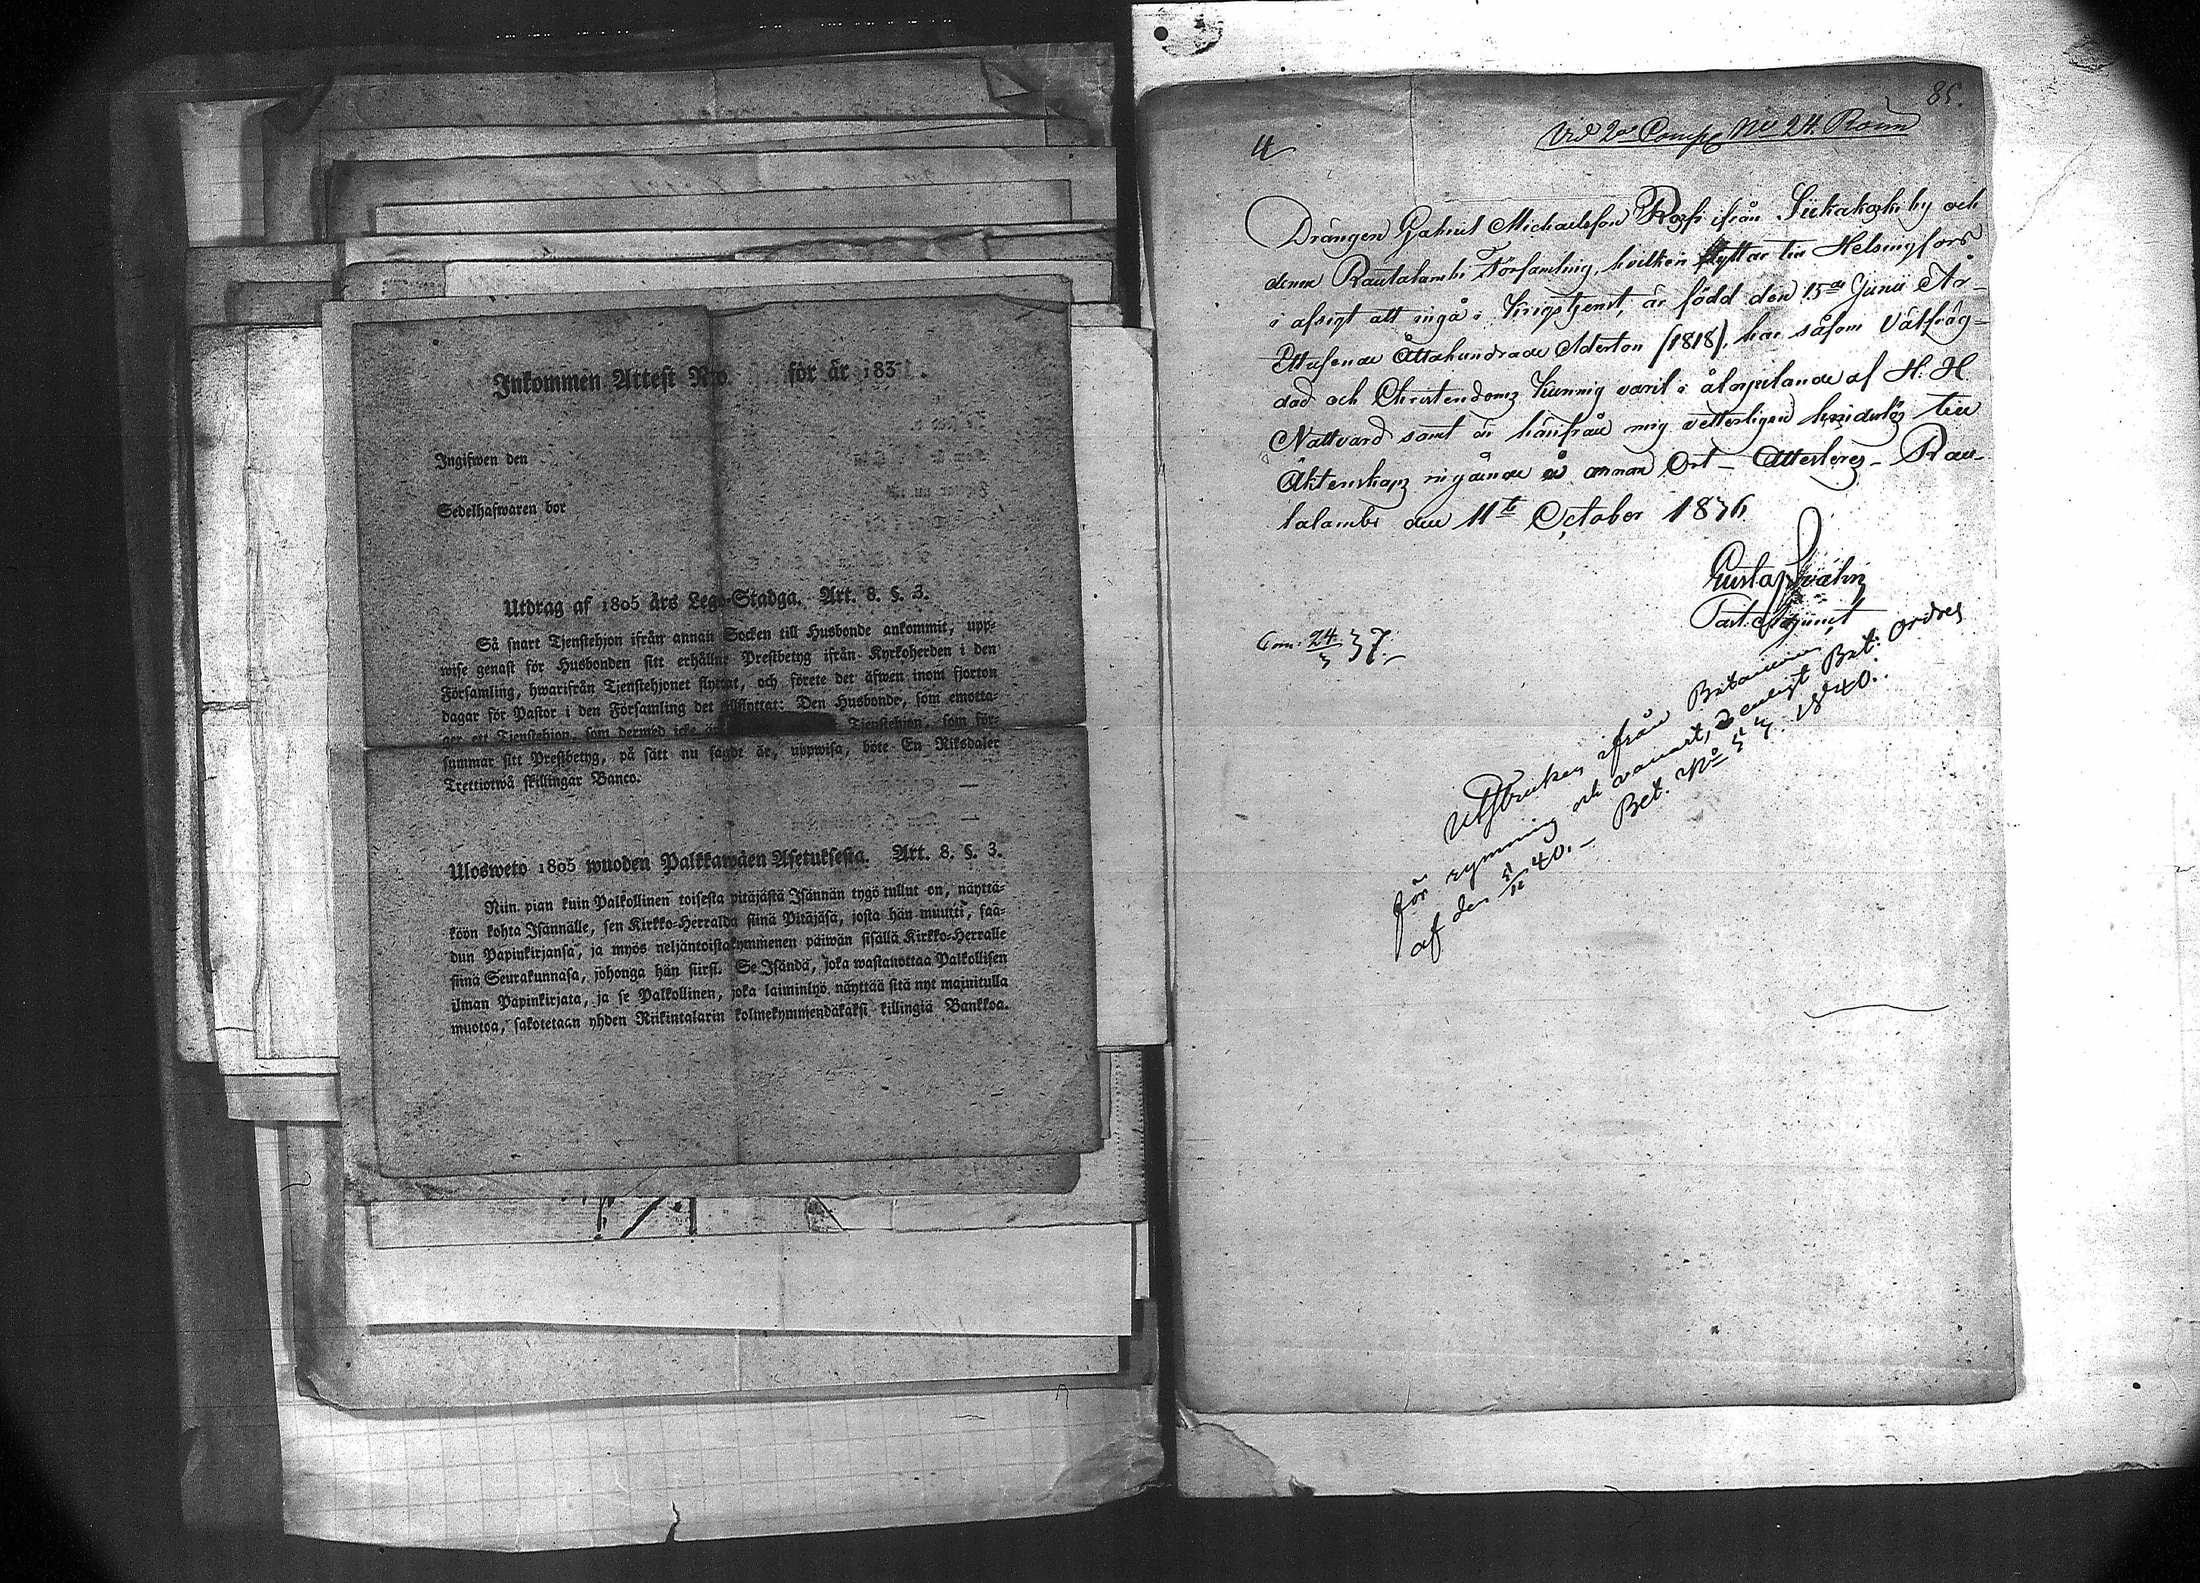 Inkommen Attest N:o för år 183 .
Ingifwen den
Sedelhafwaren bor
Utdrag af 1805 års Lego-Stadga. Art. 8. §. 3.
Så snart Tjenstehjon ifrån annan Socken till Husbonde ankommit, upp-
wise genast för Husbonden sitt erhållne Prestbetyg ifrån Kyrkoherden i den
Församling, hwarifrån Tjenstehjonet flyttat, och förete det äfwen inom fjorton
dagar för Pastor i den Församling det tillflyttat: Den Husbonde, som emotta-
ger ett Tjenstehjon, som dermed icke är Tjenstehjon, som för-
summar sitt Prestbetyg, på sätt nu sagdt är, uppwisa, böte En Riksdaler
Trettiotwå skillingar Banco.
Ulosweto 1805 wuoden Palkkawäen Asetuksesta. Art. 8. §. 3.
Niin pian kuin Palkollinen toisesta pitäjästä Isännän tygö tullut on, näyttä-
köön kohta Isännälle, sen Kirkko-Herralda siinä Pitäjäsä, josta hän muutti, saa-
dun Papinkirjansa, ja myös neljäntoistakymmenen päiwän sisällä Kirkko-Herralle
siinä Seurakunnasa, johonga hän siirsi. Se Isändä, joka wastanottaa Palkollisen
ilman Papinkirjata, ja se Palkollinen, joka laiminlyö näyttää sitä nyt mainitulla
muotoa, sakotetaan yhden Riikintalarin kolmekymmendäkaksi killingiä Bankkoa.
85.
Vid 2a Comp N:o 24. Rönn
4
Drängen Gabriel Michaelsson Ross ifrån Siikakoski by och
denna Rautalambi Församling, hvilken flyttar till Helsingfors
i afsigt att ingå i Krigstjenst, är född den 15de Junii År-
Ettusende Åttahundrade Aderton (1818), har såsom Välfräg-
dad och Christendoms kunnig varit i åtnjutande af H. H.
Nattvard samt är härifrån mig vetterligen hinderlös till
Äktenskaps ingående å annan Ort – Attesteras – Rau-
talambi den 11te October 1836
Gustaf
Past. Adjunct
Com: 24/3 37.
Utstruken ifrån Bataillonen
för rymning och vanart, enligt Bat: ordres
af den 5/12 40. – Bat. N:o 57. 1840.